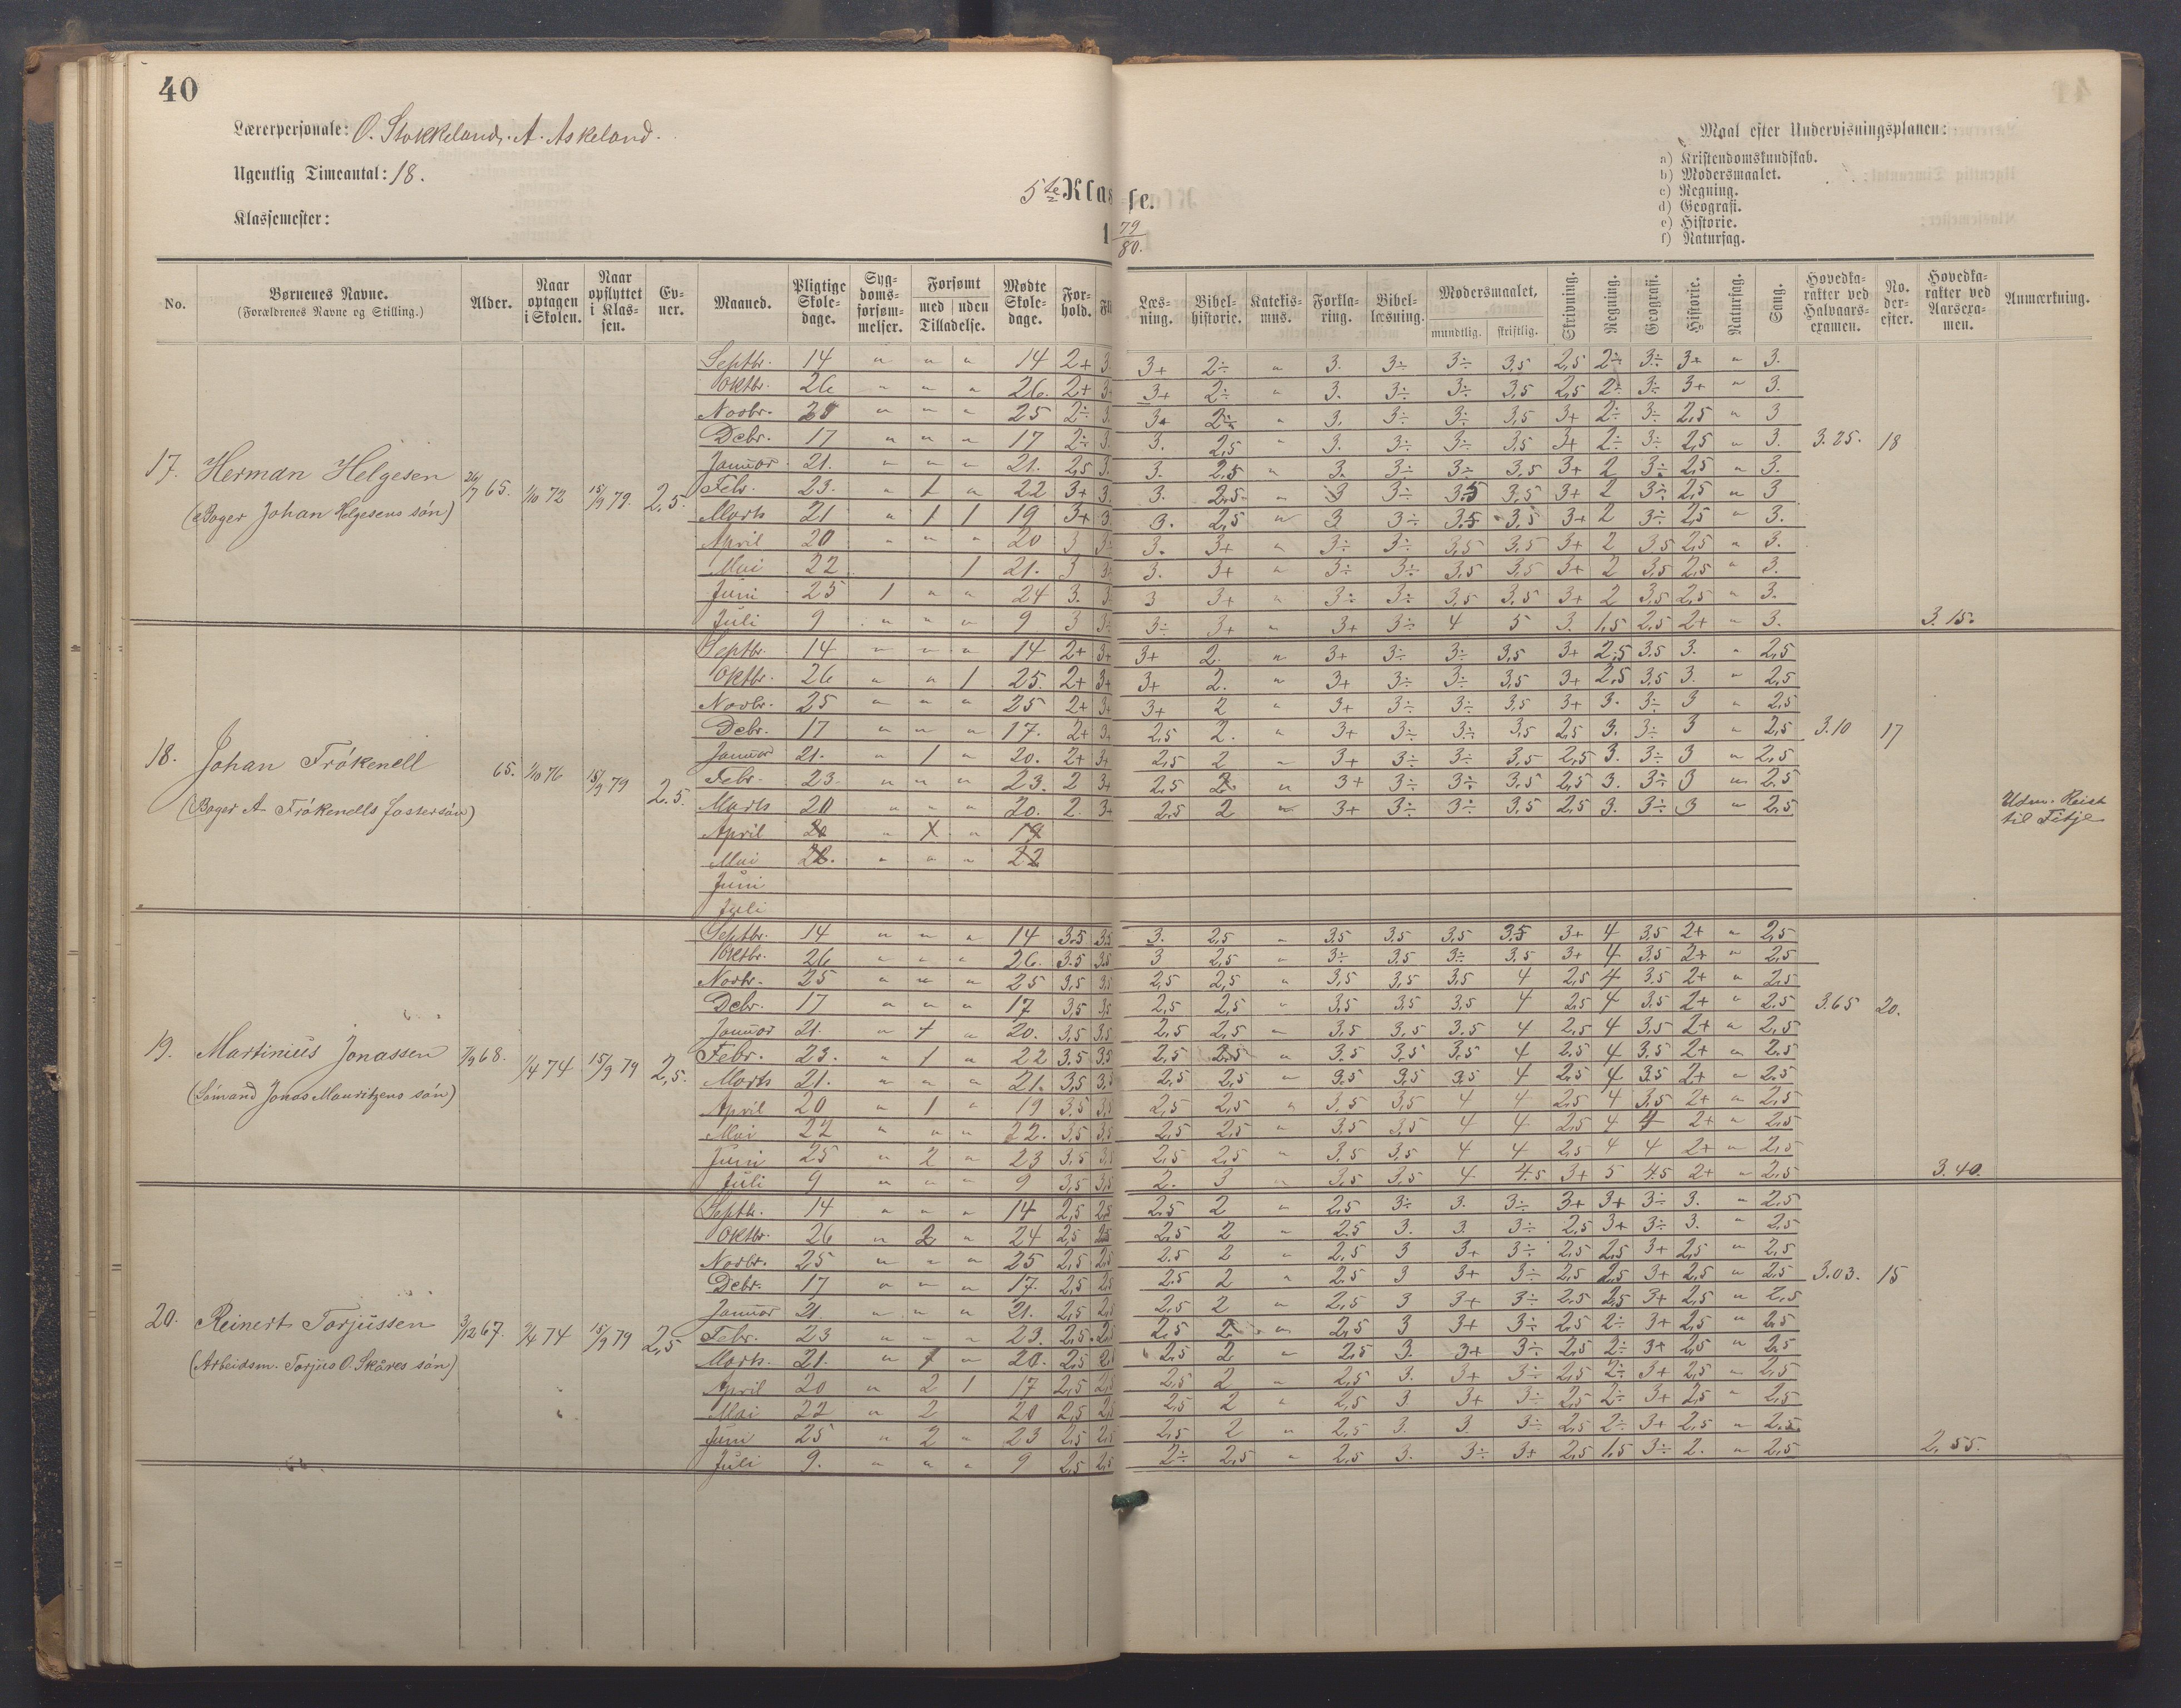 40
Lærerpersonale: O. Stokkeland. A. Askeland.
Ugentlig Timeantal: 18.
Klassemester:
5te Klasse.
1 79/80.
Maal efter Undervisningsplanen:
a) Kristendomskundskab.
b) Modersmaalet.
c) Regning.
d) Geografi.
e) Historie.
f) Naturfag.
No. | Børnenes Navne. (Forældrenes Navne og Stilling.) | Alder. | Naar optagen i Skolen. | Naar opflyttet i Klassen. | Evner. | Maaned. | Pligtige Skoledage. | Sygdomsforsømmelser. | Forsømt med / uden Tilladelse. | Mødte Skoledage. | Forhold. | Fl
Læsning. | Bibelhistorie. | Katekismus. | Forklaring. | Bibellæsning. | Modersmaalet, mundtlig. skriftlig. | Skrivning. | Regning. | Geografi. | Historie. | Naturfag. | Sang. | Hovedkarakter ved Halvaarsexamen. | No. derefter. | Hovedkarakter ved Aarsexamen. | Anmærkning.
17. Herman Helgesen 26/7 65. 1/10 72 15/9 79. 2,5.
(Bager Johan Helgesens søn)
Septbr. 14 " " " 14 2+ 3. 3+ 2÷ " 3. 3÷ 3÷ 3,5 2,5 2÷ 3÷ 3+ " 3.
Oktbr. 26 " " " 26. 2+ 3÷ 3+ 2÷ " 3. 3÷ 3÷ 3,5 2,5 2÷ 3÷ 3+ " 3.
Novbr. " " " 25 2÷ 3. 3+ 2÷ " 3. 3÷ 3÷ 3,5 3+ 2÷ 3÷ 2,5 " 3
Debr. 17 " " " 17 2÷ 3. 3. 2,5 " 3. 3÷ 3÷ 3,5 3+ 2÷ 3÷ 2,5 " 3. 3.25. 18
Januar 21. " " " 21. 2,5 3. 3. 2,5 " 3. 3÷ 3÷ 3,5 3+ 2 3÷ 2,5 " 3.
Febr. 23. " 1 " 22 3+ 3. 3. 2,5 " 3 3÷ 3,5 3,5 3+ 2 3÷ 2,5 " 3
Marts 21 " 1 1 19 3+ 3. 3. 2,5 " 3 3÷ 3,5 3,5 3+ 2 3÷ 2,5 " 3.
April 20 " " " 20 3 3÷ 3. 3+ " 3÷ 3÷ 3,5 3,5 3+ 2 3,5 2,5 " 3.
Mai 22 1 21. 3 3÷ 3. 3+ " 3÷ 3÷ 3,5 3,5 3+ 2 3,5 2,5 " 3.
Juni 25 1 " " 24 3. 3. 3 3+ " 3÷ 3÷ 3,5 3,5 3+ 2 3,5 2,5 " 3.
Juli 9 " " " 9 3 3÷ 3÷ 3+ " 3+ 3÷ 4 5 3. 1,5 2,5 2+ " 3. 3.15.
18. Johan Frøkenell 65. 1/10 76 15/9 79 2.5.
(Bager A. Frøkenells fostersøn)
Septbr. 14 " " " 14 2+ 3+ 3+ 2. " 3+ 3÷ 3÷ 3,5 3+ 2,5 3.5 3. " 2,5
Oktbr. 26 " " 1 25. 2+ 3+ 3+ 2. " 3+ 3÷ 3÷ 3,5 3+ 2,5 3,5 3. " 2,5
Novbr. 25 " " " 25 2+ 3+ 3+ 2 " 3+ 3÷ 3÷ 3,5 3+ 3. 3÷ 3 " 2,5
Debr. 17 " " " 17. 2+ 3+ 2,5 2. " 3+ 3÷ 3÷ 3,5 2,5 3. 3÷ 3 " 2,5 3.10 17
Januar 21. " 1 " 20. 2+ 3+ 2,5 2 " 3+ 3÷ 3÷ 3,5 2,5 3. 3÷ 3 " 2,5
Febr. 23. " " " 23. 2 3+ 2,5 2 " 3+ 3÷ 3÷ 3,5 2,5 3. 3÷ 3 " 2.5
Marts 20 " " " 20. 2. 3+ 2,5 2 " 3+ 3÷ 3÷ 3,5 2,5 3. 3÷ 3 " 2,5
Udm. Reist
til Fitje
April 20 " 1 " 19
Mai 22. " " " 22
Juni
Juli
19. Martinius Jonassen 7/9 68. 1/4 74 15/9 79 2,5.
(Sømand Jonas Mauritzens søn)
Septbr. 14 " " " 14 3.5 3.5 3. 2,5 " 3,5 3,5 3,5 3,5 3+ 4 3,5 2+ " 2,5
Oktbr. 26 " " " 26. 3.5 3.5 3 2,5 " 3÷ 3,5 3÷ 3,5 3+ 4 3,5 2+ " 2,5
Novbr. 25 " " " 25 3,5 3,5 2,5 2,5 " 3,5 3,5 3,5 4 2,5 4 3.5 2+ " 2,5
Debr. 17 " " " 17 3,5 3,5 2,5 2,5 " 3,5 3,5 3,5 4 2,5 4 3.5 2+ " 2.5 3.65 20.
Januar 21. " 1 " 20. 3,5 3,5 2,5 2,5 " 3,5 3,5 3.5 4 2,5 4 3,5 2+ " 2,5
Febr. 23. " 1 " 22 3.5 3.5 2,5 2,5 " 3.5 3,5 3,5 4 2.5 4 3.5 2+ " 2.5
Marts 21. " " " 21. 3,5 3,5 2,5 2,5 " 3,5 3,5 3,5 4 2.5 4 3.5 2+ " 2.5
April 20 " 1 " 19 3,5 3,5 2,5 2,5 " 3,5 3,5 4 4 2,5 4 3,5 2+ " 2,5
Mai 22 " " " 22. 3,5 3,5 2,5 2,5 " 3,5 3,5 4 4 2,5 4 4 2+ " 2,5
Juni 25 " 2 " 23 3,5 3,5 2,5 2,5 " 3,5 3,5 4 4 2,5 4 4 2+ " 2,5
Juli 9 " " " 9 3,5 3,5 2. 3 " 3,5 3,5 4 4.5 3+ 5 4.5 2+ " 2,5 3.40.
20. Reinert Torjussen 3/12 67. 74 15/9 79 2,5
(Arbeidsm. Torjus O. Skåres søn)
Septbr. 14 " " " 14 2,5 2,5 2.5 2 " 2,5 3÷ 3. 3÷ 3+ 3+ 3÷ 3. " 2,5
Oktbr. 26 " 2 " 24 2,5 2,5 2,5 2 " 2.5 3. 3. 3÷ 2.5 3+ 3÷ 3. " 2,5
Novbr. 25 " " " 25 2,5 2,5 2.5 2 " 2,5 3 3+ 3÷ 2,5 2,5 3+ 2,5 " 2,5
Debr. 17 " " " 17. 2,5 2,5 2.5 2 " 2.5 3 3+ 3÷ 2,5 2,5 3+ 2,5 " 2.5 3.03. 15
Januar 21. " " " 21. 2,5 2,5 2,5 2 " 2,5 3 3+ 3÷ 2,5 2,5 3+ 2,5 " 2,5
Febr. 23 " " " 23. 2,5 2,5 2,5 2 " 2,5 3 3+ 3÷ 2,5 2÷ 3+ 2,5 " 2.5
Marts. 21. " 1 " 20. 2,5 2,5 2,5 2 " 2,5 3. 3+ 3÷ 2,5 2÷ 3+ 2,5 " 2.5
April 20 " 2 1 17 2,5 2,5 2,5 2 " 2,5 3. 3+ 3÷ 2,5 2÷ 3+ 2,5 " 2,5
Mai 22 " 2 20 2,5 2,5 2,5 2 " 2,5 3 3+ 3÷ 2,5 2÷ 3+ 2,5 " 2,5
Juni 25 " 2 " 23 2,5 2,5 2,5 2 " 2,5 3. 3 3÷ 2,5 2÷ 3+ 2,5 " 2,5
Juli 9. " " " 9 2,5 2,5 2÷ 2,5 " 2,5 3. 3÷ 3+ 2,5 1,5 3÷ 2. " 2,5 2,55.